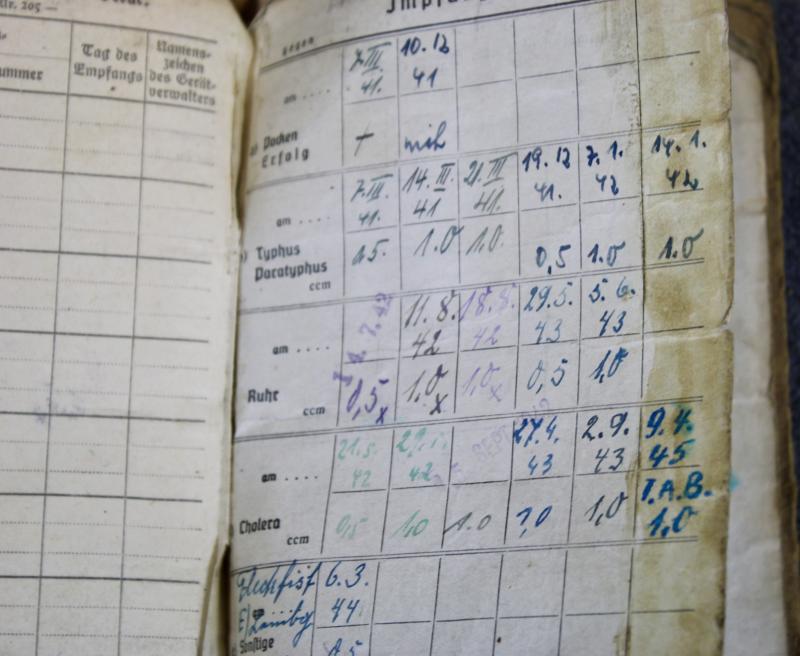 Nr. 205 —
ummer
Tag des
Empfangs
Namens-
zeichen
des Gerät-
verwalters
gegen
7.III 10.12
am .... 41. 41
Pocken
Erfolg +
7.III. 14.III. 21.III 19.12 7.1. 14.1.
am .... 41. 41 41. 41. 42 42
Typhus
Paratyphus
ccm 1.0 1.0. 0,5 1.0 1.0
7.42 11.8. 18.8. 29.5. 5.6.
am .... 42 42 43 43
Ruhr
ccm 0,5 x 1.0 x 1.0 x 0,5 1,0
21.5. 27.4. 2.9. 9.4.
am .... 42 42 43 43 45
T.A.B.
Cholera
ccm 0,5 1,0 1.0 1,0 1.0
6.3.
am 44.
Sonstige